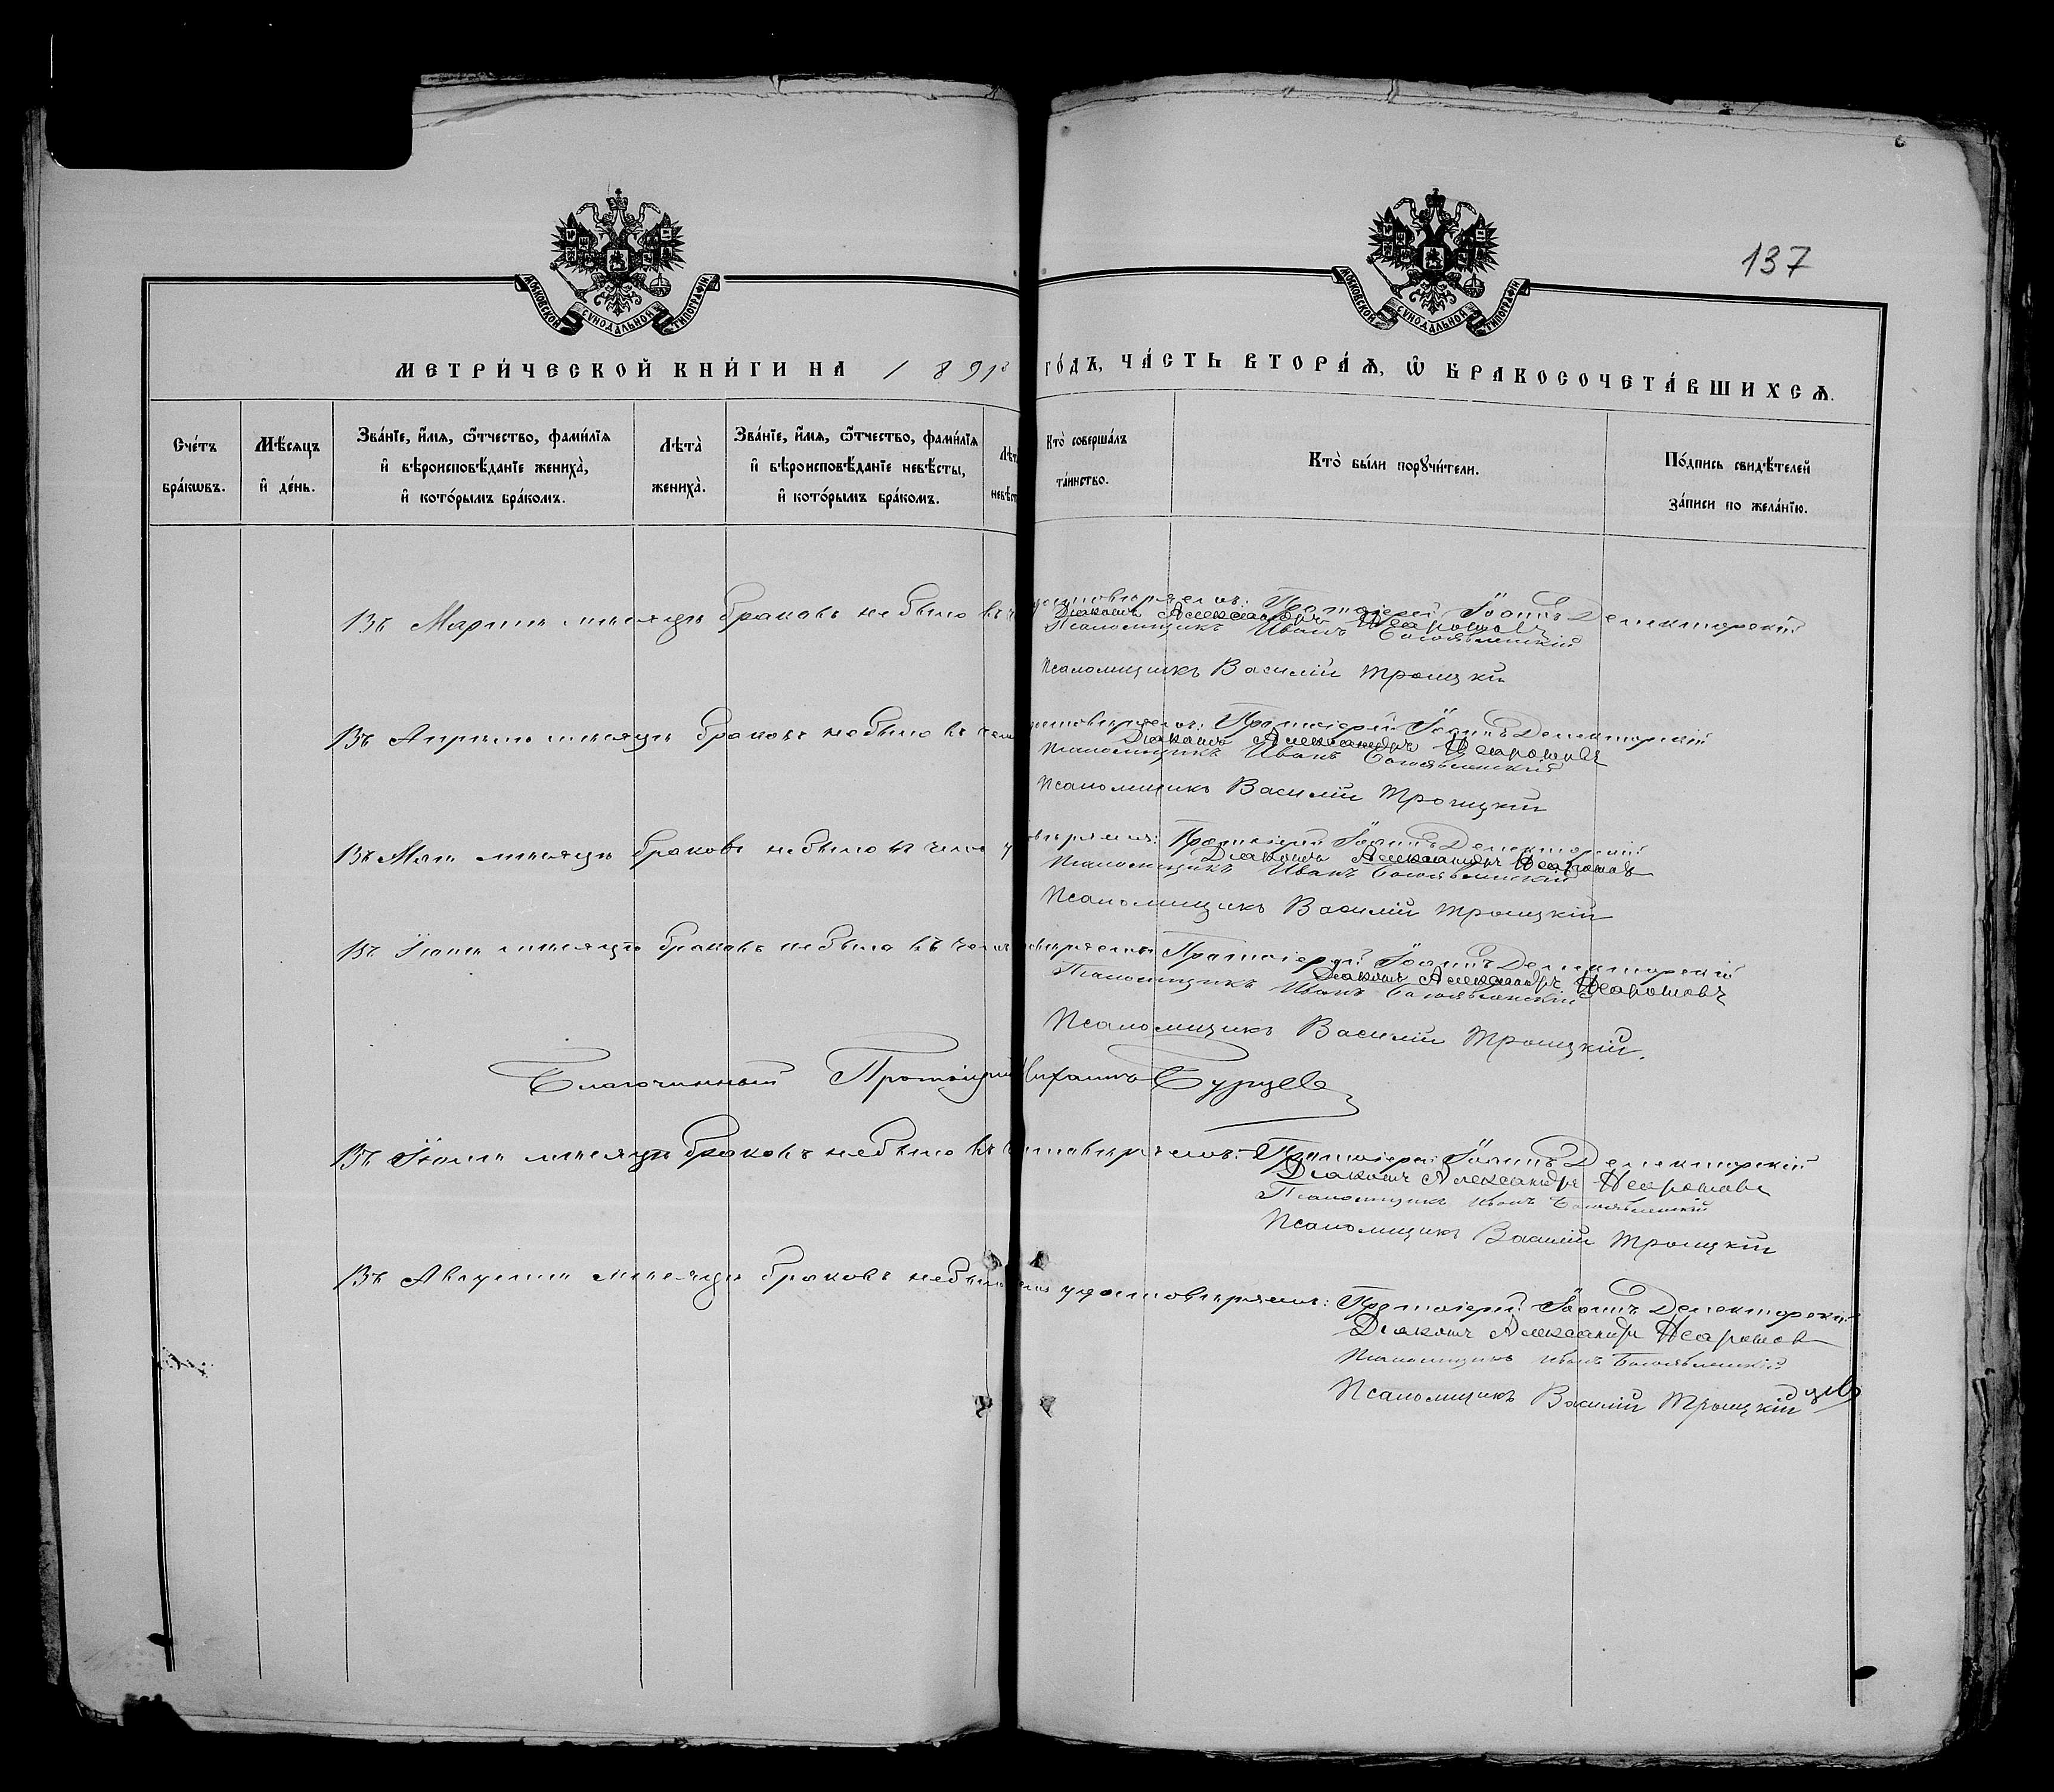 137
МОСКОВСКОЙ СѴНОДАЛЬНОЙ ТИПОГРАФІИ
МОСКОВСКОЙ СѴНОДАЛЬНОЙ ТИПОГРАФІИ
МЕТРИ́ЧЕСКОЙ КНИ́ГИ НА 1891 ГО́ДЪ, ЧА́СТЬ ВТОРА́Ѧ, Ѽ БРАКОСОЧЕТА́ВШИХСѦ.
Сче́тъ бра́кѡвъ.
Мѣ́сѧцъ и҆ де́нь.
Зва́нїе, и҆́мѧ, ѻ҆́тчество, фами́лїѧ и҆ вѣроисповѣ́данїе жениха̀, и҆ кото́рымъ бра́комъ.
Лѣта̀ жениха̀.
Зва́нїе, и҆́мѧ, ѻ҆́тчество, фами́лїѧ и҆ вѣроисповѣ́данїе невѣ́сты, и҆ кото́рымъ бра́комъ.
Лѣт невѣст
Кто̀ соверша́лъ та́инство.
Кто̀ бы́ли порꙋчи́тели.
По́дпись свидѣ́телей за́писи по жела́нїю.
Въ Мартѣ мѣсяцѣ браковъ не было въ Протоіерей Іоаннъ Делекторскій
Діаконъ Александръ
Псаломщикъ Иванъ Богоявленскій
Псаломщикъ Василій Троицкій
Въ Апрѣлѣ мѣсяцѣ браковъ не было въ чемъ Протоіерей Іоаннъ Делекторскій
Діаконъ Александръ
Псаломщикъ Иванъ Богоявленскій
Псаломщикъ Василій Троицкій
Въ Маѣ мѣсяцѣ браковъ не было въ чемъ Протоіерей Іоаннъ Делекторскій
Діаконъ Александръ
Псаломщикъ Иванъ Богоявленскій
Псаломщикъ Василій Троицкій
Въ Іюнѣ мѣсяцѣ браковъ не было въ чемъ Протоіерей Іоаннъ Делекторскій
Діаконъ Александръ
Псаломщикъ Иванъ Богоявленскій
Псаломщикъ Василій Троицкій.
Благочинный Протоіерей Михаилъ Бурцевъ
Въ Іюлѣ мѣсяцѣ браковъ не было въ Протоіерей Іоаннъ Делекторскій
Діаконъ Александръ
Псаломщикъ Иванъ Богоявленскій
Псаломщикъ Василій Троицкій
Въ Августѣ мѣсяцѣ браковъ не было удостовѣряемъ: Протоіерей Іоаннъ Делекторскій
Діаконъ Александръ
Псаломщикъ Иванъ Богоявленскій
Псаломщикъ Василій Троицкій